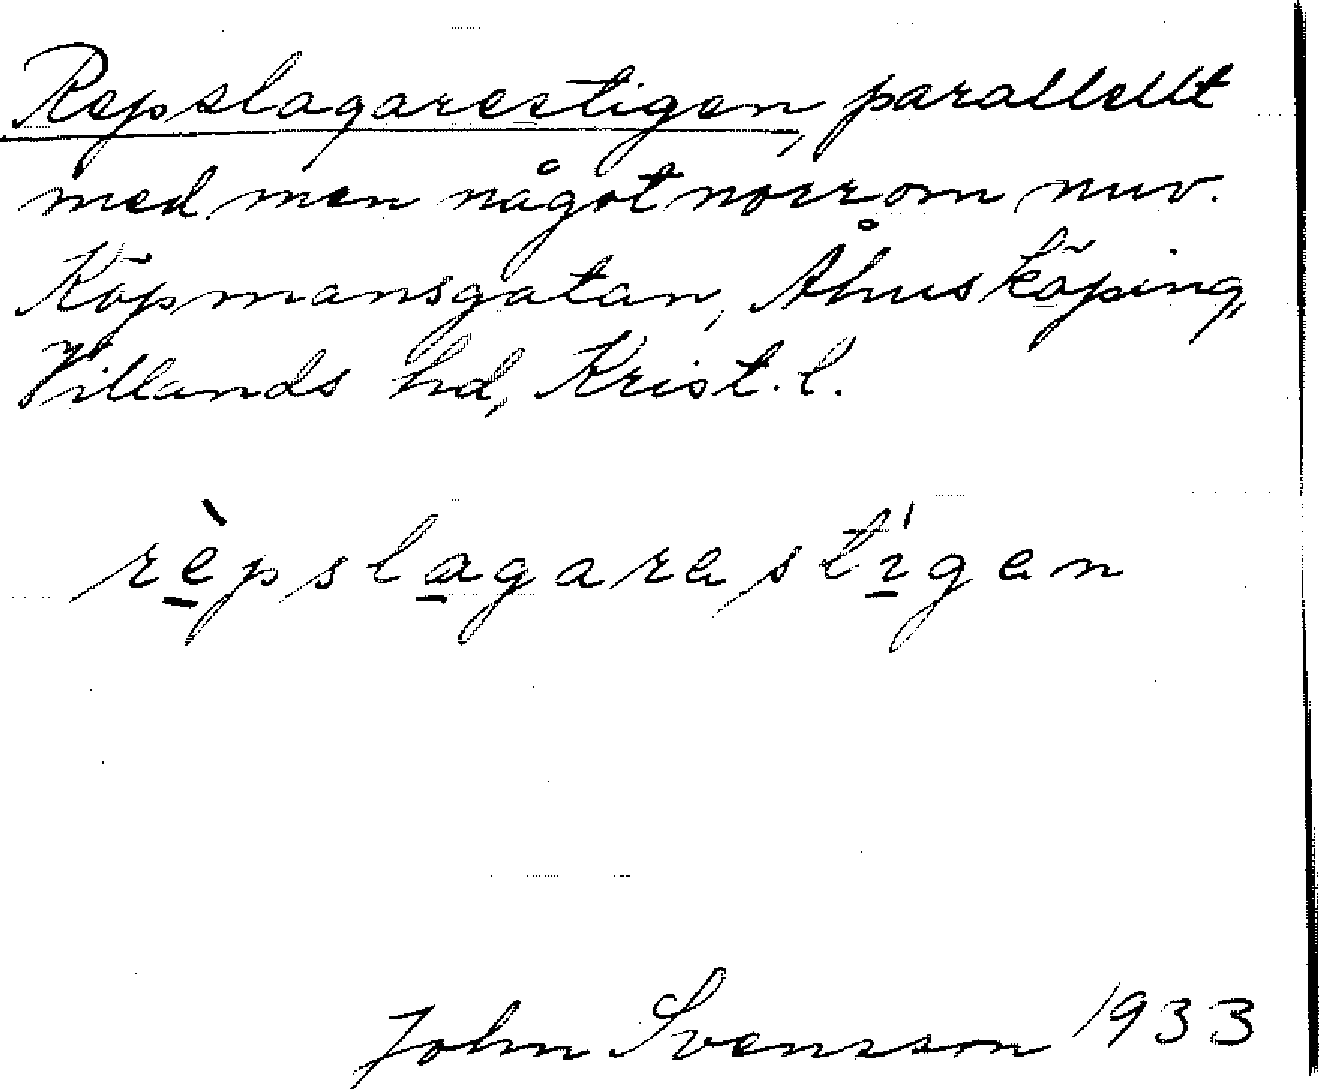 Repslagarestigen, parallellt
med men något norr om nuv.
Köpmansgatan, Åhus köping,
Villands hd, Krist. l.
rèpslagarestígen
John Svensson 1933